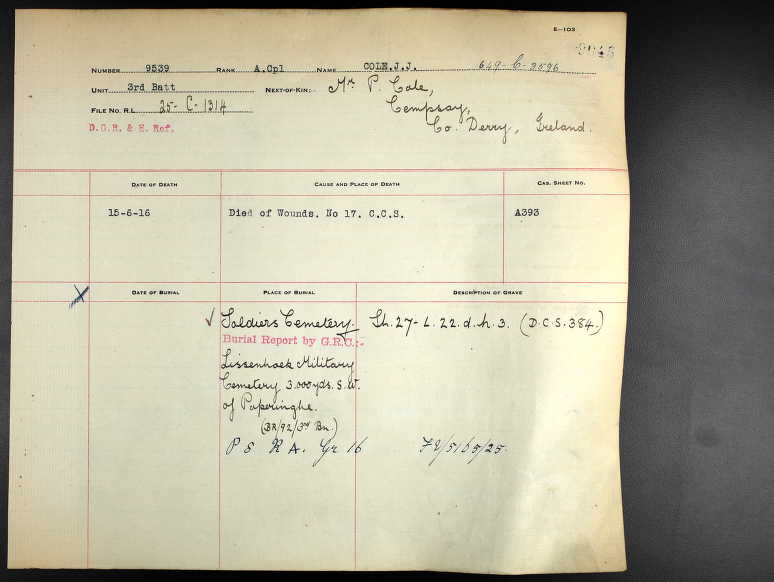 E—103
NUMBER 9539 RANK A.Cpl NAME COLE.J.J. 649-C-2596
UNIT 3rd Batt NEXT-OF-KIN:- Mr P. Cole,
Cempsay,
FILE NO. R.L. 25-C-1314
Co. Derry, Ireland.
D.G.R. & E. Ref.
DATE OF DEATH CAUSE AND PLACE OF DEATH CAS. SHEET NO.
15-6-16 Died of Wounds. No 17. C.C.S. A393
DATE OF BURIAL PLACE OF BURIAL DESCRIPTION OF GRAVE
Soldiers Cemetery. Sh.27-L.22.d.h.3. (D.C.S.384.)
Burial Report by G.R.C.:-
Lissenhoek Military
Cemetery 3.000yds. S.W.
of Poperinghe.
(BR/92/3rd Bn.)
P 5 R A. Gr 16